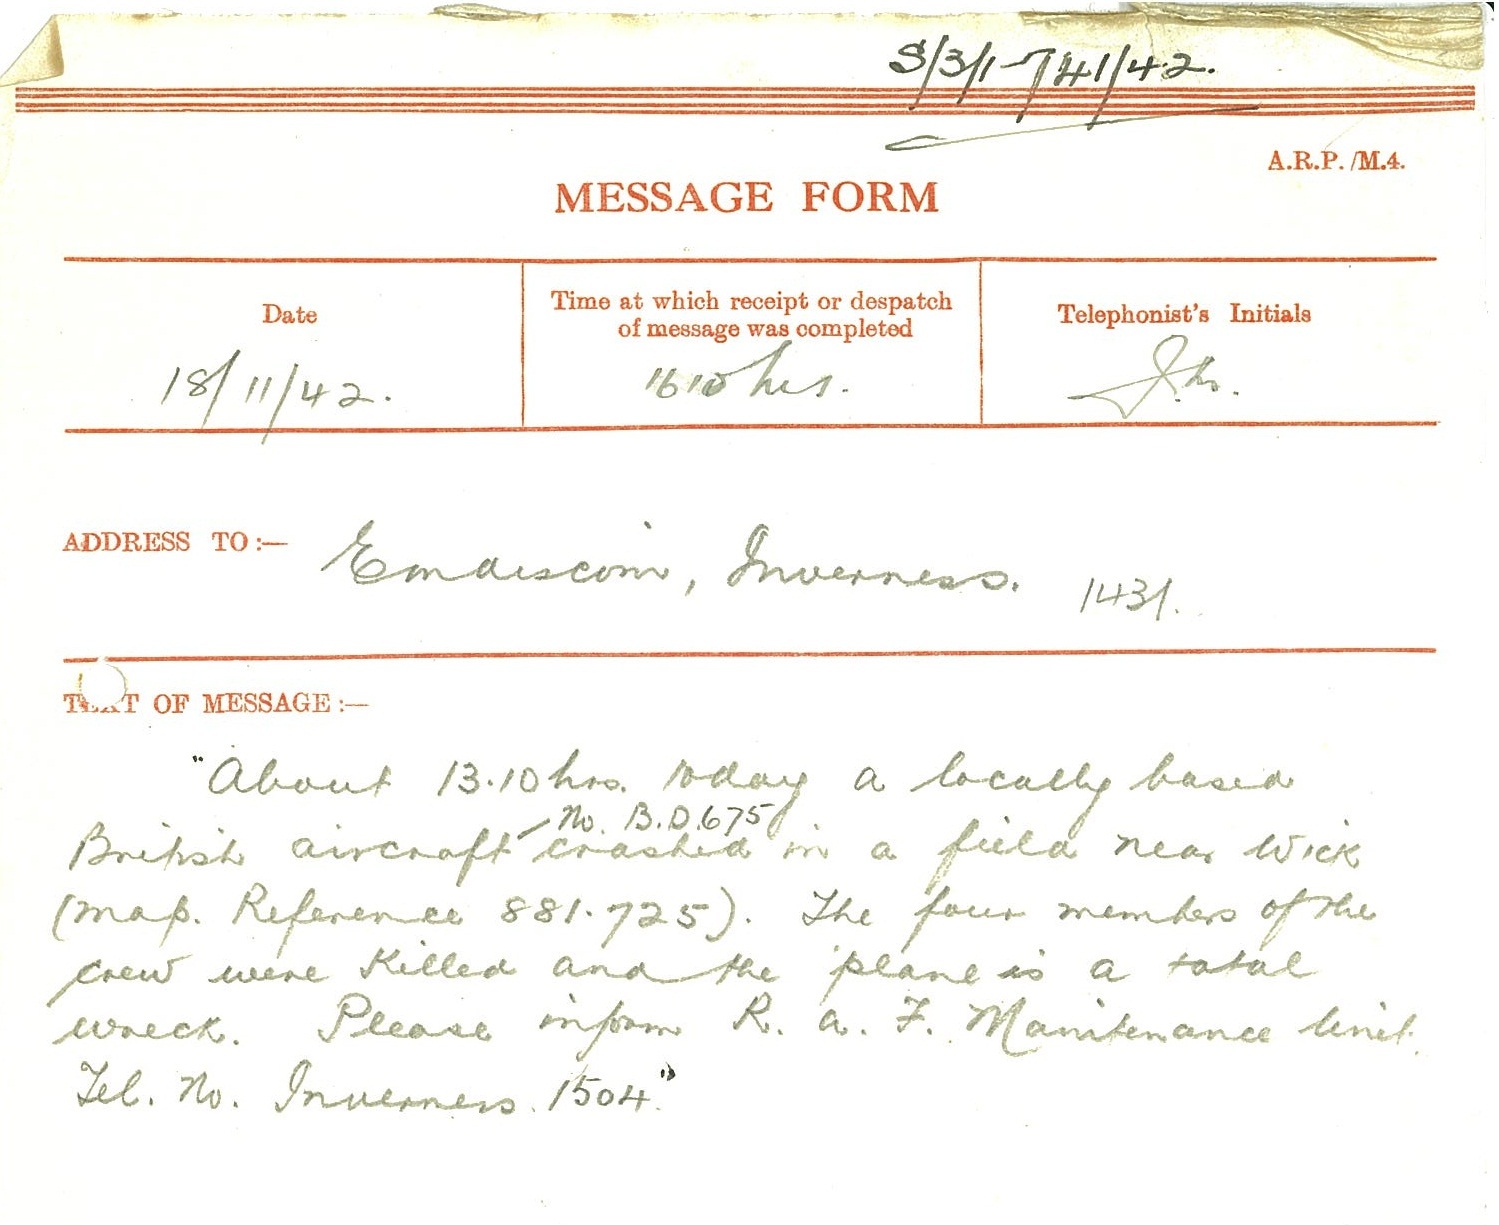 S/3/1-741/42.
A.R.P./M.4.
MESSAGE FORM
Date
Time at which receipt or despatch
of message was completed
Telephonist's Initials
18/11/42.
1610 hrs.
ADDRESS TO :—
Emdiscom, Inverness. 1431.
TEXT OF MESSAGE :—
"About 13.10 hrs. today a locally based
No. B.D.675
British aircraft crashed in a field near Wick
(map. Reference 881.725). The four members of the
crew were killed and the plane is a total
wreck. Please inform R.A.F. Maintenance Unit.
Tel. No. Inverness 1504."